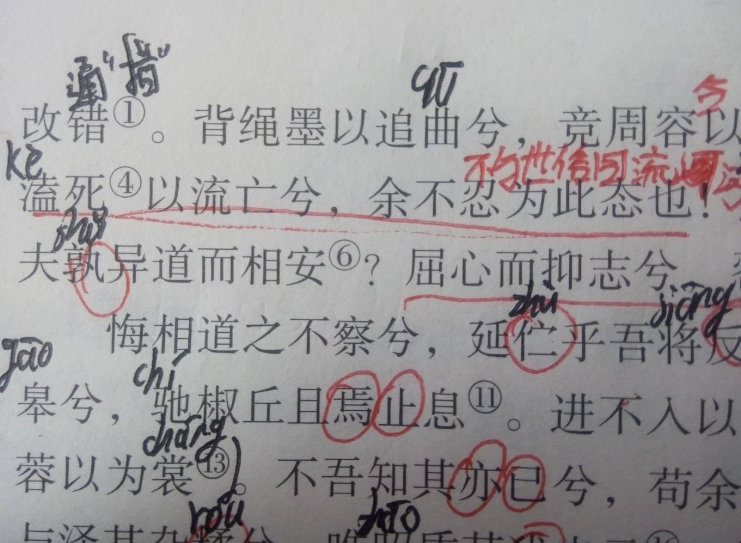 通“措” qū 今
改错①。背绳墨以追曲兮，竞周容以
kè 不与世俗同流
溘死④以流亡兮，余不忍为此态也！
shú
夫孰异道而相安⑥？屈心而抑志兮，
zhù jiāng
悔相道之不察兮，延伫乎吾将反
gāo chí
皋兮，驰椒丘且焉止息⑪。进不入以
cháng
蓉以为裳⑬。不吾知其亦已兮，苟余
róu zhāo
与泽其杂糅兮，唯昭质其